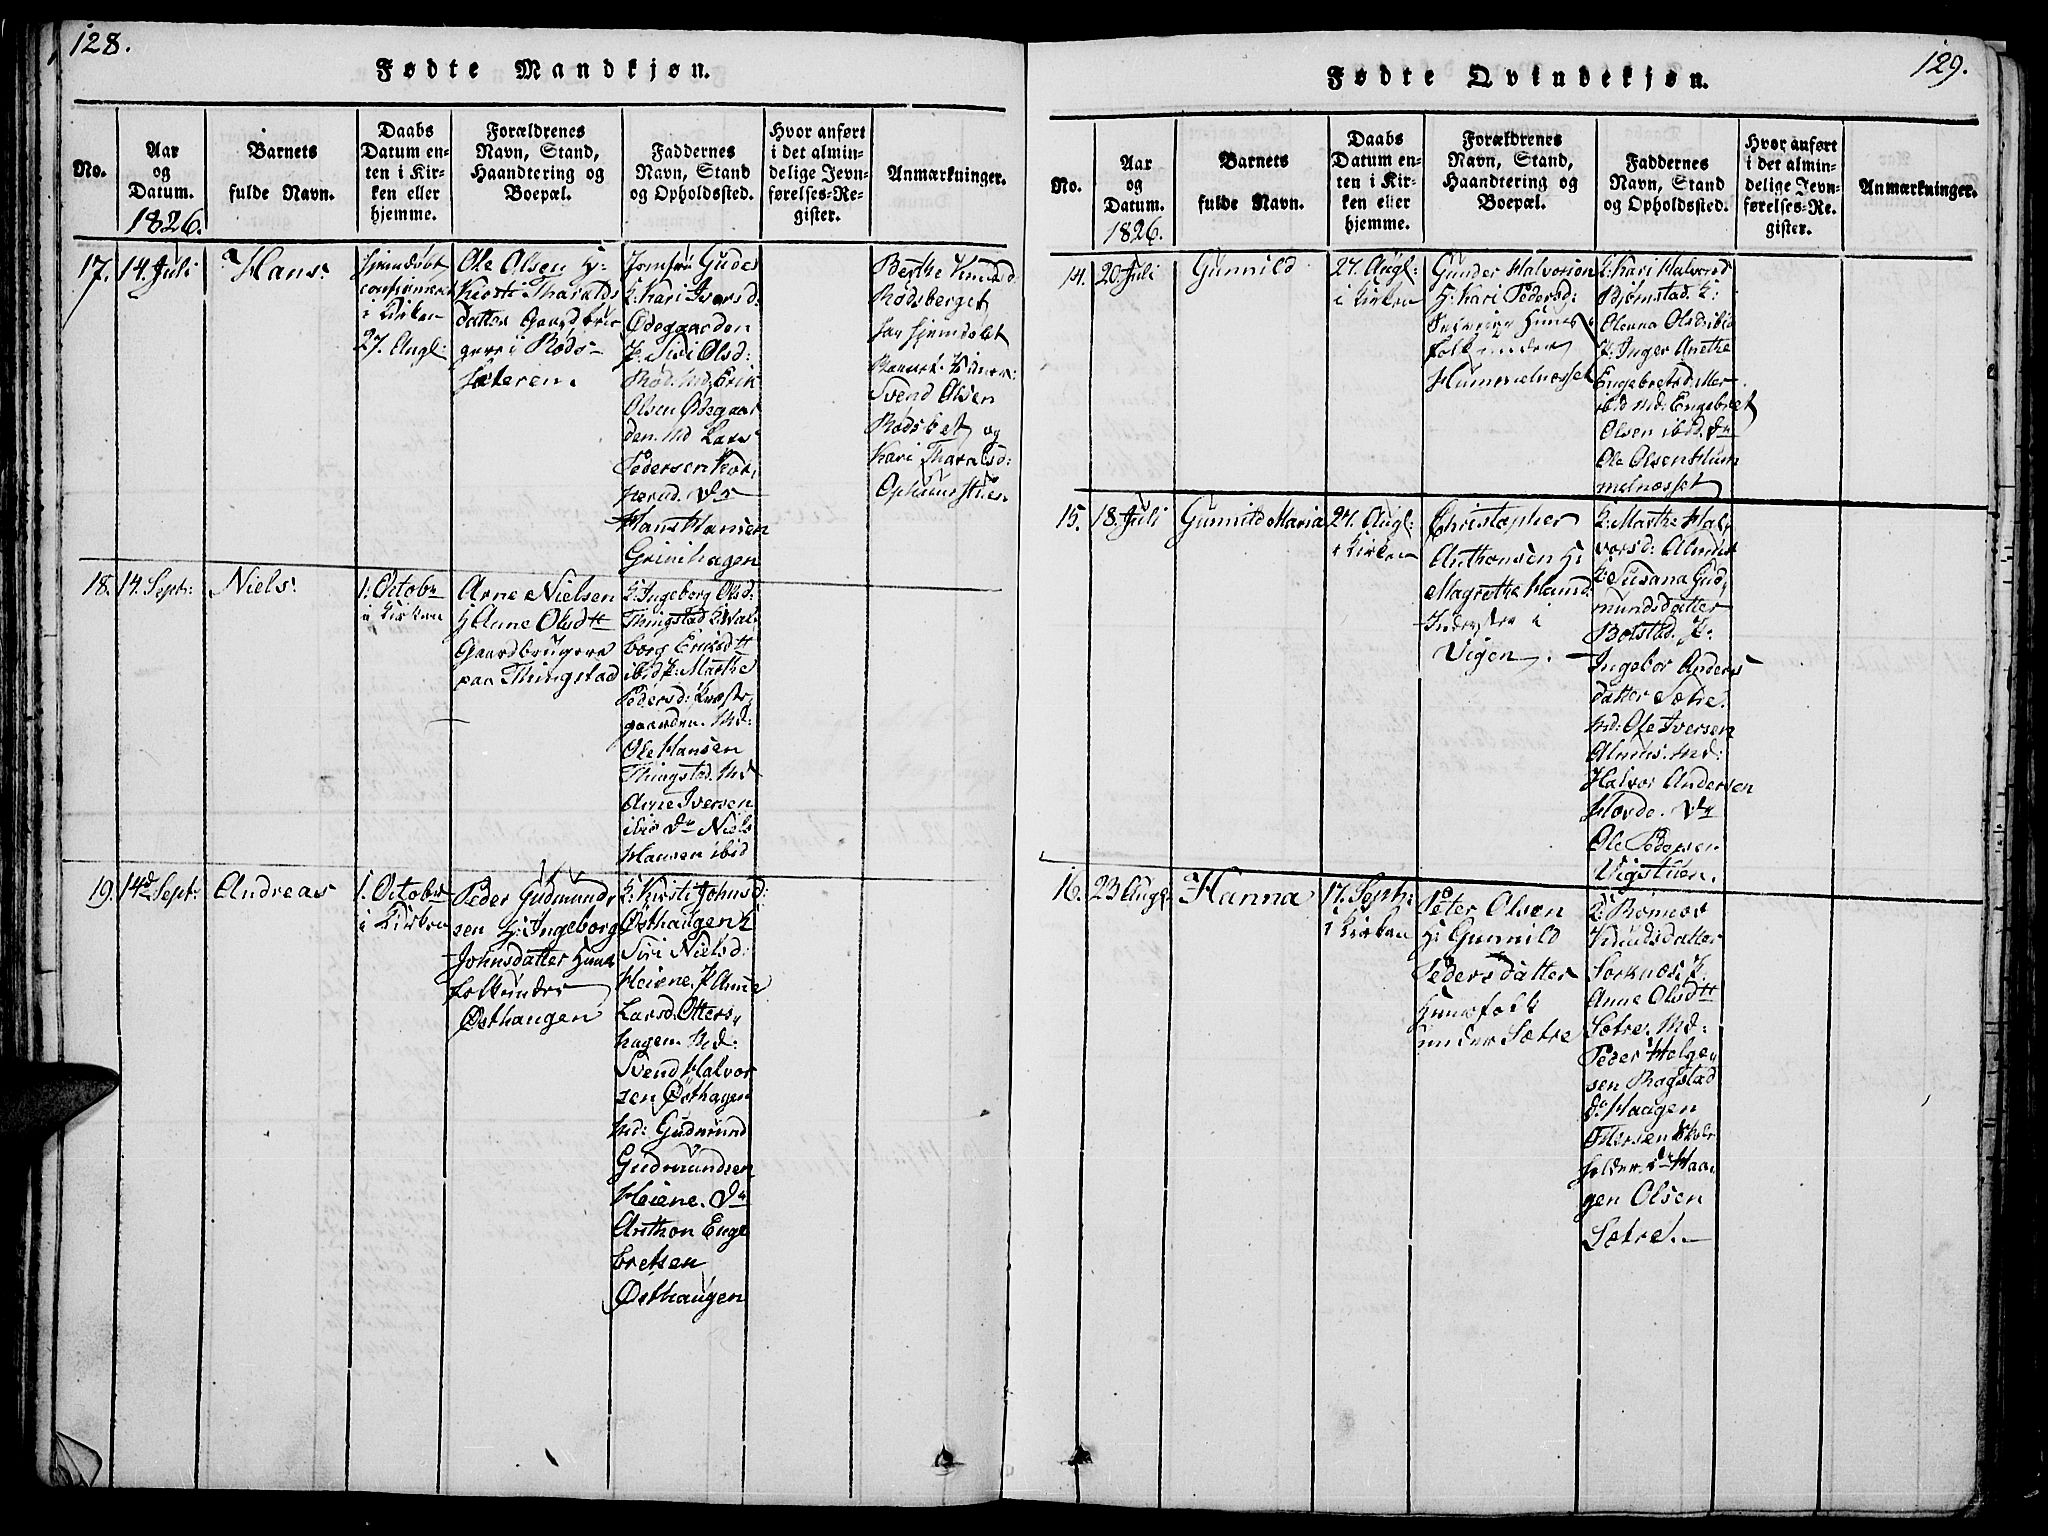 128.
Fødte Mandkjøn.
No.
Aar
og
Datum.
1826.
Barnets
fulde Navn.
Daabs
Datum en-
ten i Kir-
ken eller
hjemme.
Forældrenes
Navn, Stand,
Haandtering og
Boepæl.
Faddernes
Navn, Stand
og Opholdssted.
Hvor anført
i det almin-
delige Jevn-
førelses-Re-
gister.
Anmærkninger.
17.
14. Juli
Hans
hjemdøbt
confirmeret
i Kirken
27. Augl:
Ole Olsen H:
Kirsti Tharalds
datter Gaardbru
gere i Røds-
sæteren.
Jomfru Gudes
K: Kari Iversd:
Ødegaarden
P. Siri Olsd:
Rød. Md. Erik
Olsen Ødegaar
den. Md Lars
Pedersen Kor,
serud. Dr
Hans Hansen
Grinihagen
Berthe Knudsd
Rødsberget
har hjemdøbt
Barnet.
Svend Olsen
Rødsbet og
Kari Tharalsd:
18.
14. Septr:
Niels
1. Octobr
i Kirken
Arne Nielsen
H Anne Olsdtt
Gaardbrugere
paa Thingstad
K: Ingeborg Olsd.
Thingstad K: Val-
borg Eriksdtt
ibid P: Marthe
Pedersd:
gaarden. Md:
Ole Hansen
Thingstad. Md
Arne Iversen
ibid Dr Niels
Hansen ibid
19.
14d Septr:
Andreas
1. Octobr
i Kirken
Peder Gudmund
sen H: Ingeborg
Johnsdatter Huus
folk under
Østhaugen
K: Kirsti Johnsd:
Østhaugen K
Siri Nielsd:
Heiene. P Anne
Larsd. Otters,
hagen. Md:
Svend Halvor
sen Østhagen
Md: Gudmund
Gudmundsen
Heiene. Dr
Anthon Enge
bretsen
Østhaugen
129.
Fødte Qvindekjøn.
No.
Aar
og
Datum.
1826.
Barnets
fulde Navn.
Daabs
Datum en-
ten i Kir-
ken eller
hjemme.
Forældrenes
Navn, Stand,
Haandtering og
Boepæl.
Faddernes
Navn, Stand
og Opholdssted.
Hvor anført
i det almin-
delige Jevn-
førelses-Re-
gister.
Anmærkninger.
14.
20. Juli
Gunnild
27. Augl:
i Kirken
Gunder Halvorsen
H: Kari Pedersd:
Huus
folk under
Hummelnæsset
K: Kari Halvorsd
Bjørnstad. K:
Olenna Olsd: ibid
P: Inger Anethe
Engebretsd.
ibid Md: Engebret
Olsen ibid. Dr
Ole Olsen Hum
melnæsset
15.
18. Juli
Gunnild Maria
27. Augl:
i Kirken
Christopher
Anthonsen H:
Magrethe
i
Vigen.
K: Marthe Hal
vorsd:
K: Susana Gud,
mundsdatter
Bolstad. P:
Ingebor Anders
datter Sætre.
Md: Ole Iversen
Md:
Halvor Andersen
Hovde. Dr
Ole Pedersen
Vigstuen.
16.
23 Augl
Hanna
17. Septr:
i Kirken
Peter Olsen
H: Gunnild
Pedersdatter
Huusfolk
under Sætre
K:
Knudsdatter
Sorknæs. P.
Anne Olsdtt
Sætre. Md:
Peder Helge,
sen Rogstad
do. Haagen
Ottersen Skole
holder. Dr Haa,
gen Olsen
Sætre.